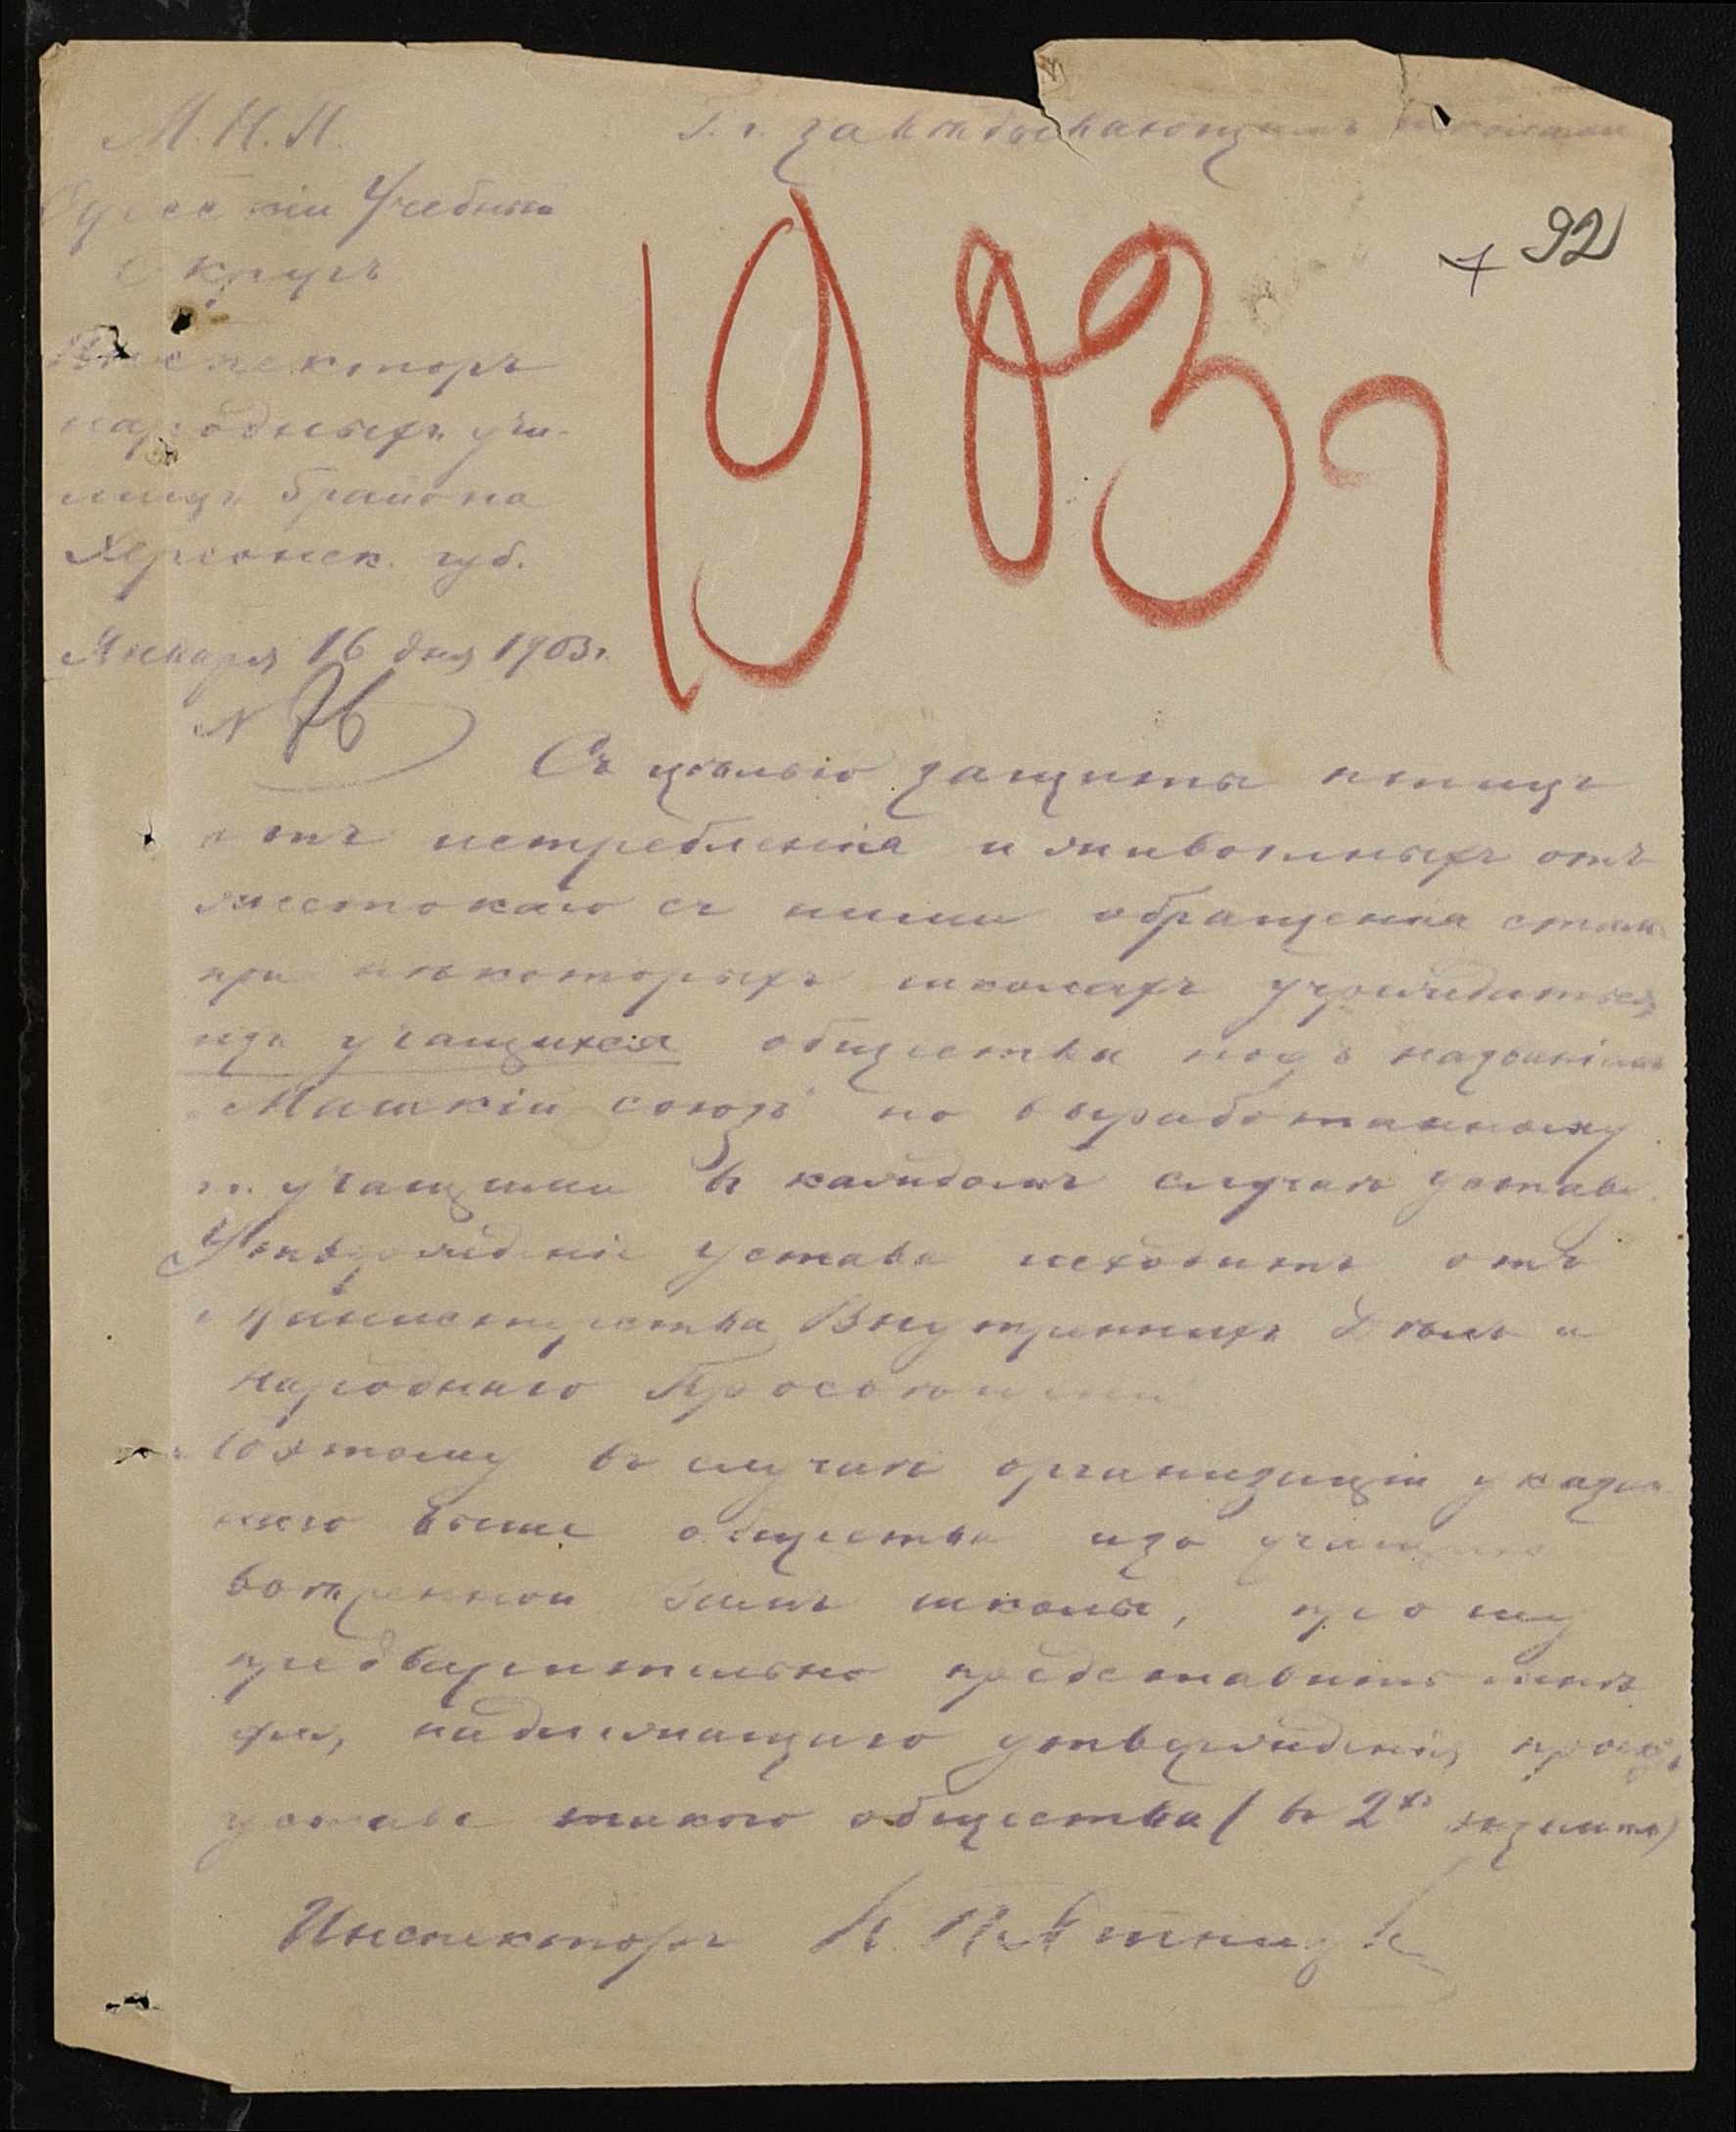 М. Н. П.
Г.г. завѣдывающимъ школами
Одесскій Учебный
Округъ
92
1903 г
Инспекторъ
народныхъ учи-
лищъ 5 района
Херсонск. губ.
Января 16 дня 1903 г.
N 76
Съ цѣлью защиты птицъ
отъ истребленія и животныхъ отъ
жестокаго съ ними обращенія стали
при нѣкоторыхъ школахъ учреждаться
изъ учащихся общества подъ названіемъ
Майскій союзъ по выработанному
г.г. учащими въ каждомъ случаѣ уставу.
Утвержденіе устава исходитъ отъ
Министерства Внутреннихъ Дѣлъ и
Народнаго Просвѣщенія
Поэтому въ случаѣ организаціи указан
наго выше общества изъ учащихся
ввѣренной Вамъ школы, прошу
предварительно представить мнѣ
для, надлежащаго утвержденія, проектъ
устава такого общества (въ 2хъ экземпл)
Инспекторъ